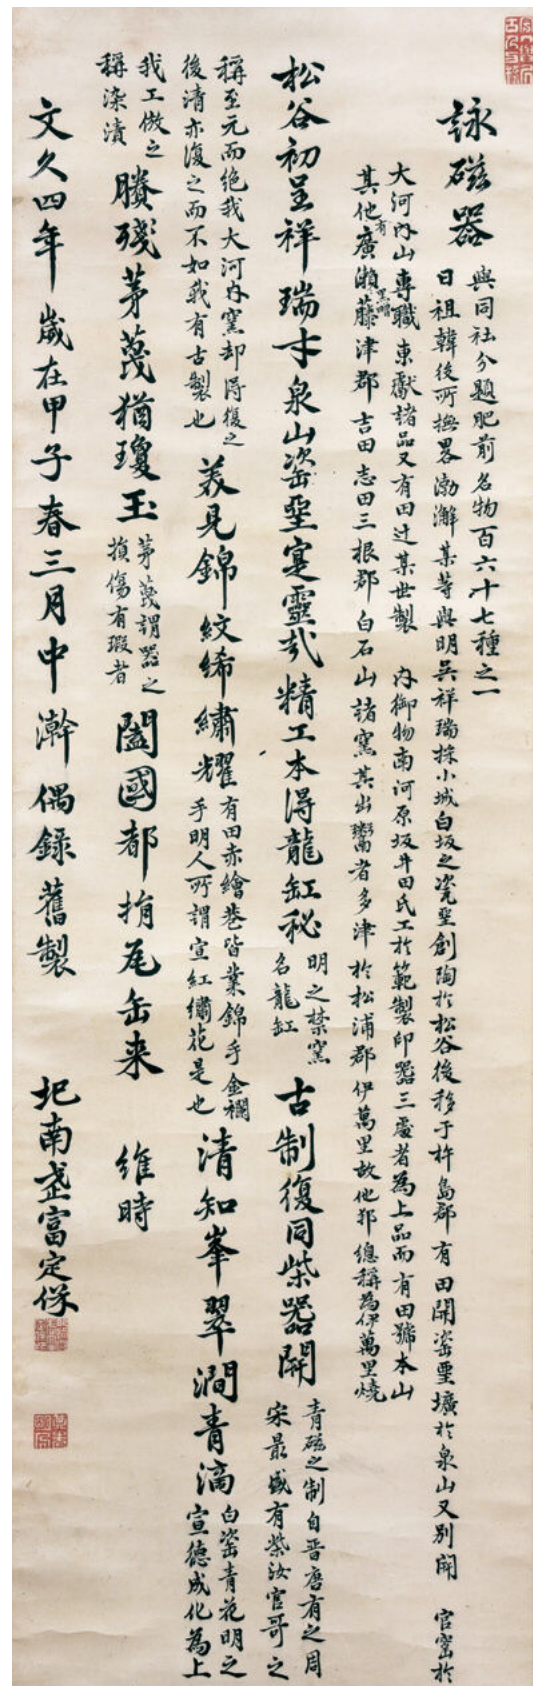 詠磁器
與同社分題肥前名物百六十七種之一
日祖韓後所撫畧渤澥某等與明呉祥瑞採小城白坂之瓷堊創陶於松谷後移于杵島郡有田開窰堊壙於泉山又別開 官窰於
大河内山專職東獻諸品又有田辻某世製 内御物南河原坂井田氏工於範製印器三處者為上品而有田號本山
其他有廣瀨黒嘈藤津郡吉田志田三根郡白石山諸窯其出鬻者多津於松浦郡伊萬里故他邦總稱為伊萬里燒
松谷初呈祥瑞才泉山窰堊寔靈哉精工本得龍缸秘
明之禁窯
名龍缸
古制復同柴器開
青磁之制自晋唐有之周
宋最盛有柴汝官哥之
稱至元而絶我大河内窯却得復之
後清亦復之而不如我有古製也
羨見錦紋絺繡耀
有田赤繪巷皆業錦手金襴
手明人所謂宣紅繡花是也
清知峯翠澗青滴
白窰青花明之
宣德成化為上
我工倣之
稱染漬
賸殘茅蔑猶瓊玉
茅蔑謂器之
損傷有瑕者
闔國都捐瓦缶来
維時
文久四年歲在甲子春三月中澣偶錄舊製
圯南武富定保